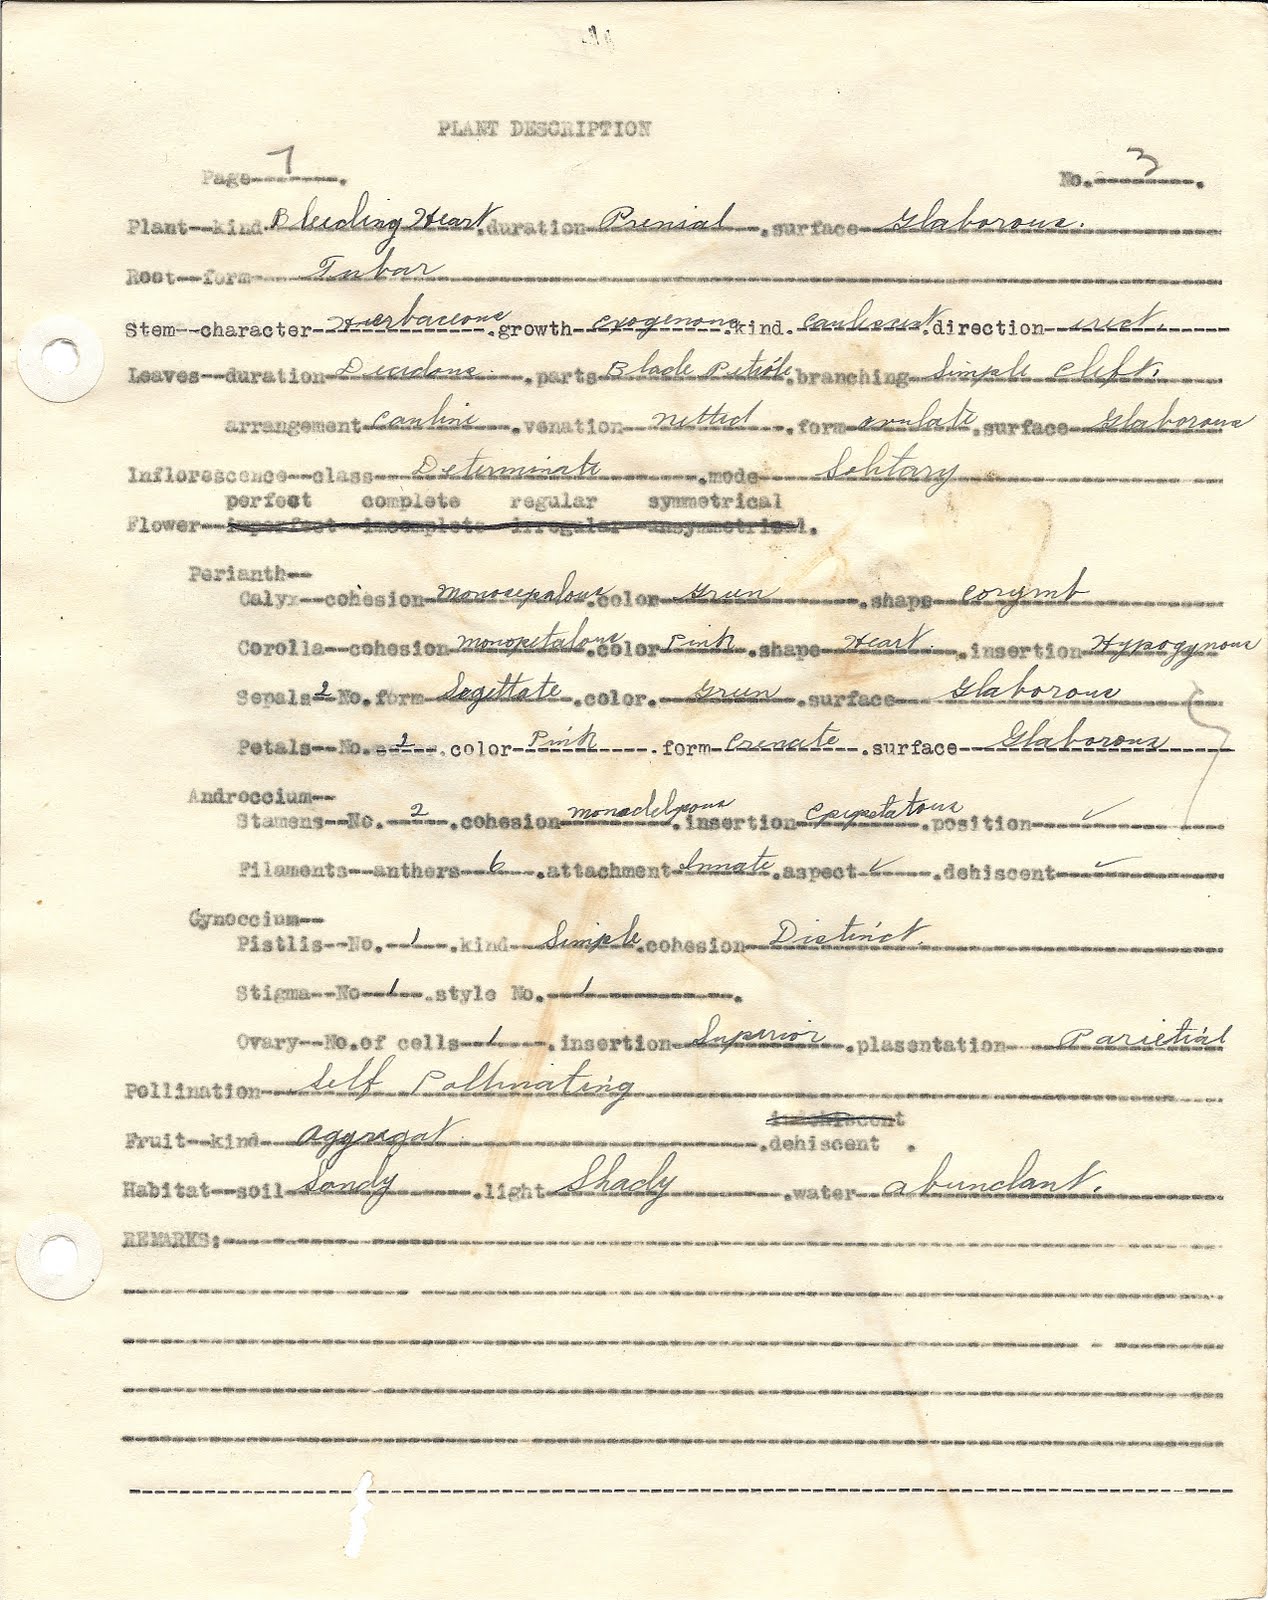 PLANT DESCRIPTION
Page 7. No. 3.
Plant--kind Bleeding Heart. duration Prenial. surface Glaborous.
Root--form Tubar
Stem--character Herbaceous. growth exogenous. kind. caulescent. direction erect.
Leaves--duration Decidous. parts Blade Petiole. branching Simple cleft.
arrangement cauline. venation netted. form ovulate. surface Glaborous
Inflorescence--class Determinate. mode Solitary
perfect complete regular symmetrical
Flower--imperfect incomplete irregular unsymmetrical.
Perianth--
Calyx--cohesion monosepalous. color Green. shape corymb
Corolla--cohesion monopetalous. color Pink. shape Heart. insertion Hypogynous
Sepals 2 No. form Sagittate. color. Green. surface Glaborous
Petals--No. 2. color Pink. form Crenate. surface Glaborous
Androccium--
Stamens--No. 2. cohesion monadelpous. insertion Epipetatous. position ✓
Filaments--anthers 6. attachment Innate. aspect ✓. dehiscent ✓
Gynoccium--
Pistlis--No. 1. kind Simple. cohesion Distinct.
Stigma--No 1. style No. 1.
Ovary--No. of cells 1. insertion Superior. plasentation Parietial
Pollination Self Pollinating
indehiscent
Fruit--kind aggregat. dehiscent .
Habitat--soil Sandy. light Shady. water abundant.
REMARKS: